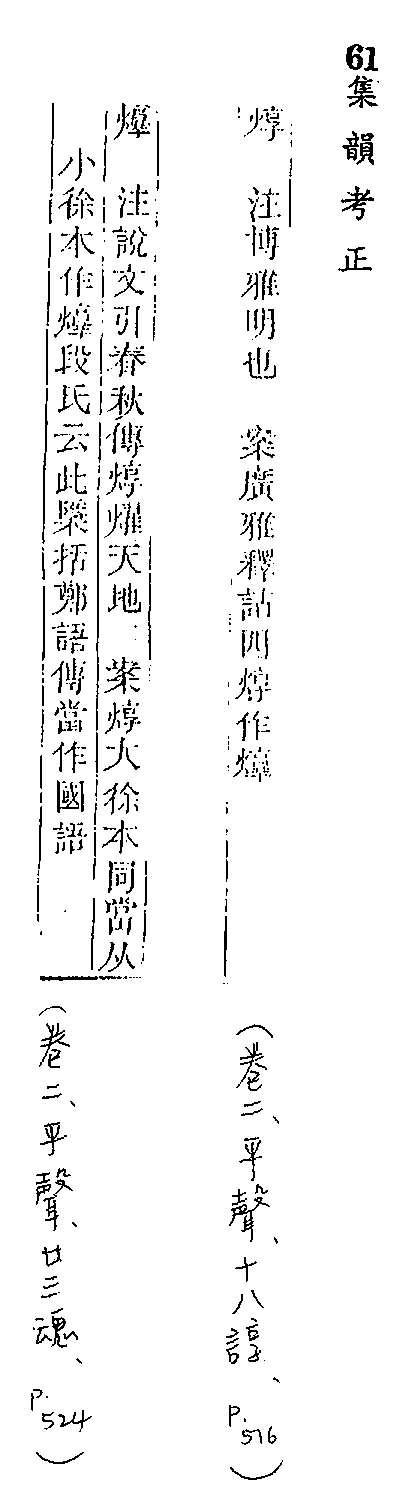 61集韻考正
焞　注博雅明也　案廣雅釋詁四焞作㷷（卷二、平聲、十八諄、P.516）
㷷　注說文引春秋傳焞燿天地　案焞大徐本同當从
小徐本作㷷段氏云此檃括鄭語傳當作國語（卷二、平聲、廿三魂、P.524）